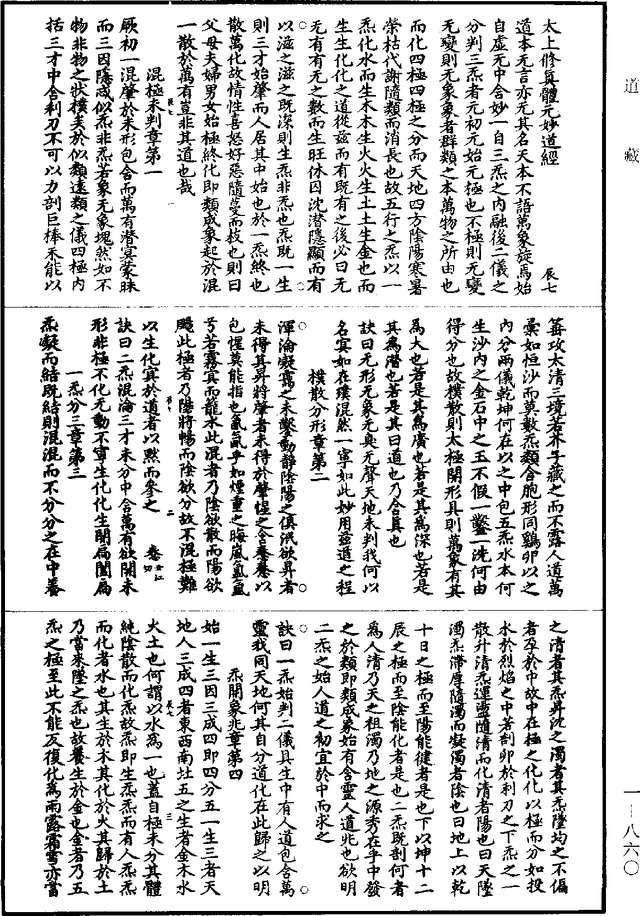 道藏
太上修真體元妙道經
辰七
道本无言亦无其名天本不語萬象旋馬始
自虛无中含妙一自三炁之內融後二儀之
分判三炁者元初元始元極也不極則无變
无變則无象象者群類之本萬物之所由也
而化四極四極之分而天地四方陰陽寒暑
榮枯代謝隨類而消長也故五行之炁以一
炁化水而生木木生火火生土土生金也而
生生化化之道從茲而有既有之後必曰无
无有有无之數而生旺休囚沈潜隱顯而有
以滋之滋之既深則生炁非炁也炁既一生
則三才始肇而人居其中始也於一炁終也
散萬化故情性喜怒好惡隨蔓而殺也則曰
父母夫婦男女始極終化即類成象起於混
一散於萬有豈非其道也哉
混極未判章第一
厥初一混肇於未形包含而萬有潜寞蒙昧
而三因隱咸似炁非炁若象无象塊然如不
物非物之狀模美於似類遠類之儀四極內
括三才中含利刃不可以力剖巨棒未能以
篝攻太清三境若芥子藏之而不露人道萬
彙如恒沙而莫數炁類合胞形同鷄卵以之
內分兩儀乾坤何在以之中包五炁水本何
生沙內之金石中之玉不假一鑿一洗何由
得分也故樸散則太極開形具則萬象有其
為大也若是其為廣也若是其為深也若是
其為潜也若是其曰道也乃合真也
訣曰无形无象无臭无聲天地未判我何以
名寞如在璞混然一寧如此妙用茲道之程
樸散分形章第二
渾淪凝靄之未鑿動靜陰陽之俱泯欲昇者
未得其昇將肇者未得於肇惺之含蓄蓄以
包惺莫能指也氤氤乎如煙重之晦嵐氳氳
兮若霧寞而籠水此混者乃陰欲散而陽欲
颺此極者乃陽將暢而陰欲分故不混極難
以生化寞於道者以黙而參之
訣曰二炁混淪三才未分中含萬有欲開未
形非極不化无動不寧生化化生開扃闔扃
一炁分三章第三
炁凝而結既結則混混而不分分之在中蓄
之清者其炁昇沈之濁者其炁墜均之不偏
者孕於中故中在極之化化以極而分如投
水於烈焰之中若剖卵於利刃之下炁之一
散升清炁運靈隨清而化清者陽也曰天墜
濁炁滯厚隨濁而凝濁者陰也曰地上以乾
十日之極而至陽能健者是也下以坤十二
辰之極而至陰能化者是也二炁既剖何者
為人清乃天之祖濁乃地之源秀在乎中發
之於類即類成象始有含靈人道兆也欲明
二炁之始人道之初宜於中而求之
訣曰一炁始判二儀具生中有人道包含萬
靈我同天地何其自分道化在此歸之以明
炁開象兆章第四
始一生三因三成四即四分五一生三者天
地人三成四者東西南北五之生者金木水
火土也何謂以水為一也蓋自極未分其體
純陰散而化炁故炁即生炁炁而有人炁炁
而化者水也其生於木其化於火其歸於土
乃當來墜之炁也故養生於金也金者乃五
炁之極至此不能反復化為雨露霜雪亦當
一－八六〇